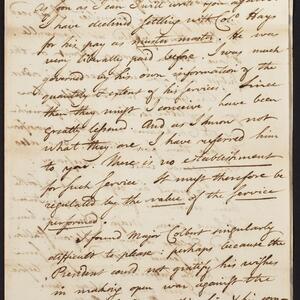 as soon as I can I will write you again.
I have declined settling with Colo. Hays
for his pay as muster master. He was
very liberally paid before. I was much
governed by his own information of the
quantity & extent of his services. Since
then they must I conceive, have been
greatly lessened. And as I know not
what they are, I have referred him
to you. There is no establishment
for such service. It must therefore be
regulated by the value of the service
performed.
I found Major Colbert singularly
difficult to please: perhaps because the
President could not gratify his wishes
in making open war against the